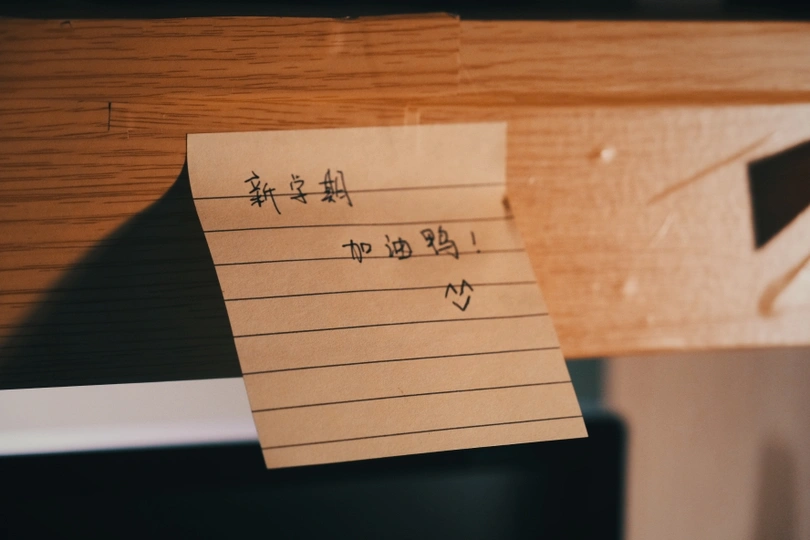 新学期
加油鸭！
^^